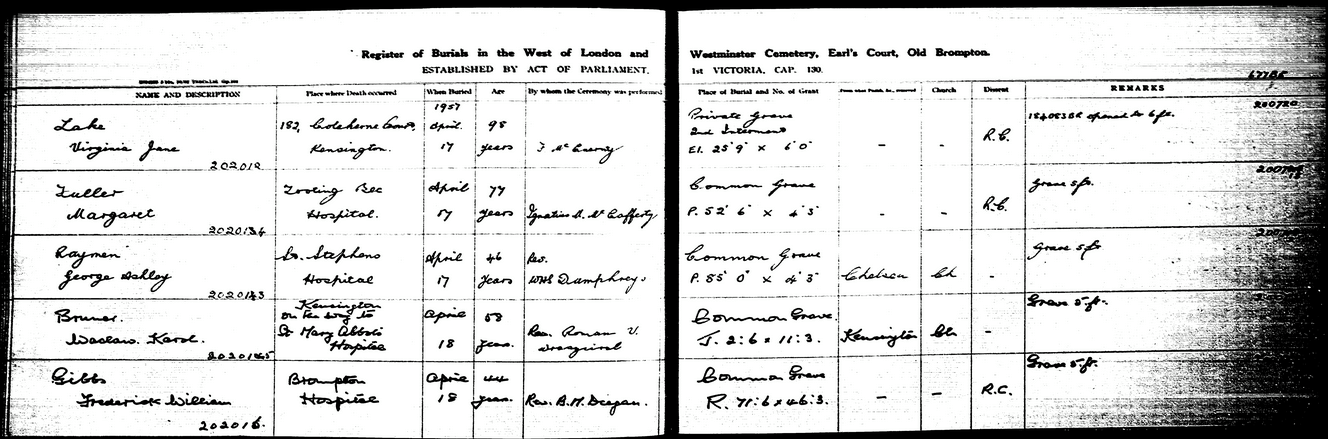 Register of Burials in the West of London and Westminster Cemetery, Earl's Court, Old Brompton.
ESTABLISHED BY ACT OF PARLIAMENT, 1st VICTORIA, CAP. 130.
NAME AND DESCRIPTION Place where Death occurred When Buried Age By whom the Ceremony was performed Place of Burial and No. of Grant Church Dissent REMARKS
1957
Lake 182, Coleherne Court, April 98 Private Grave 200720
2nd Interment R.C. opened to 6 ft.
Virginia Jane Kensington. 17 years El. 25'9" x 6'0" - -
202012
Fuller Tooting Bec April 77 Common Grave Grave 5 ft.
Margaret Hospital. 17 years Ignatius D. McCafferty P. 52'6" x 4'3" - - R.C.
Raymen St. Stephens April 46 Rev. Common Grave Grave 5 ft
George Ashley Hospital 17 years P. 85'0" x 4'3" Chelsea Ch -
Bruner. Kensington April 53 Common Grave. Grave 5 ft.
on the way to
Waclaw. Karol. St Mary Abbots Hospital 18 years. Rev. Roman V. J. 2:6 x 11:3. Kensington Ch. -
Gibbs Brompton April 44 Common Grave Grave 5 ft.
Frederick William Hospital 18 years. Rev. B.M. Deegan. R. 71:6 x 46:3. - - R.C.
202016.